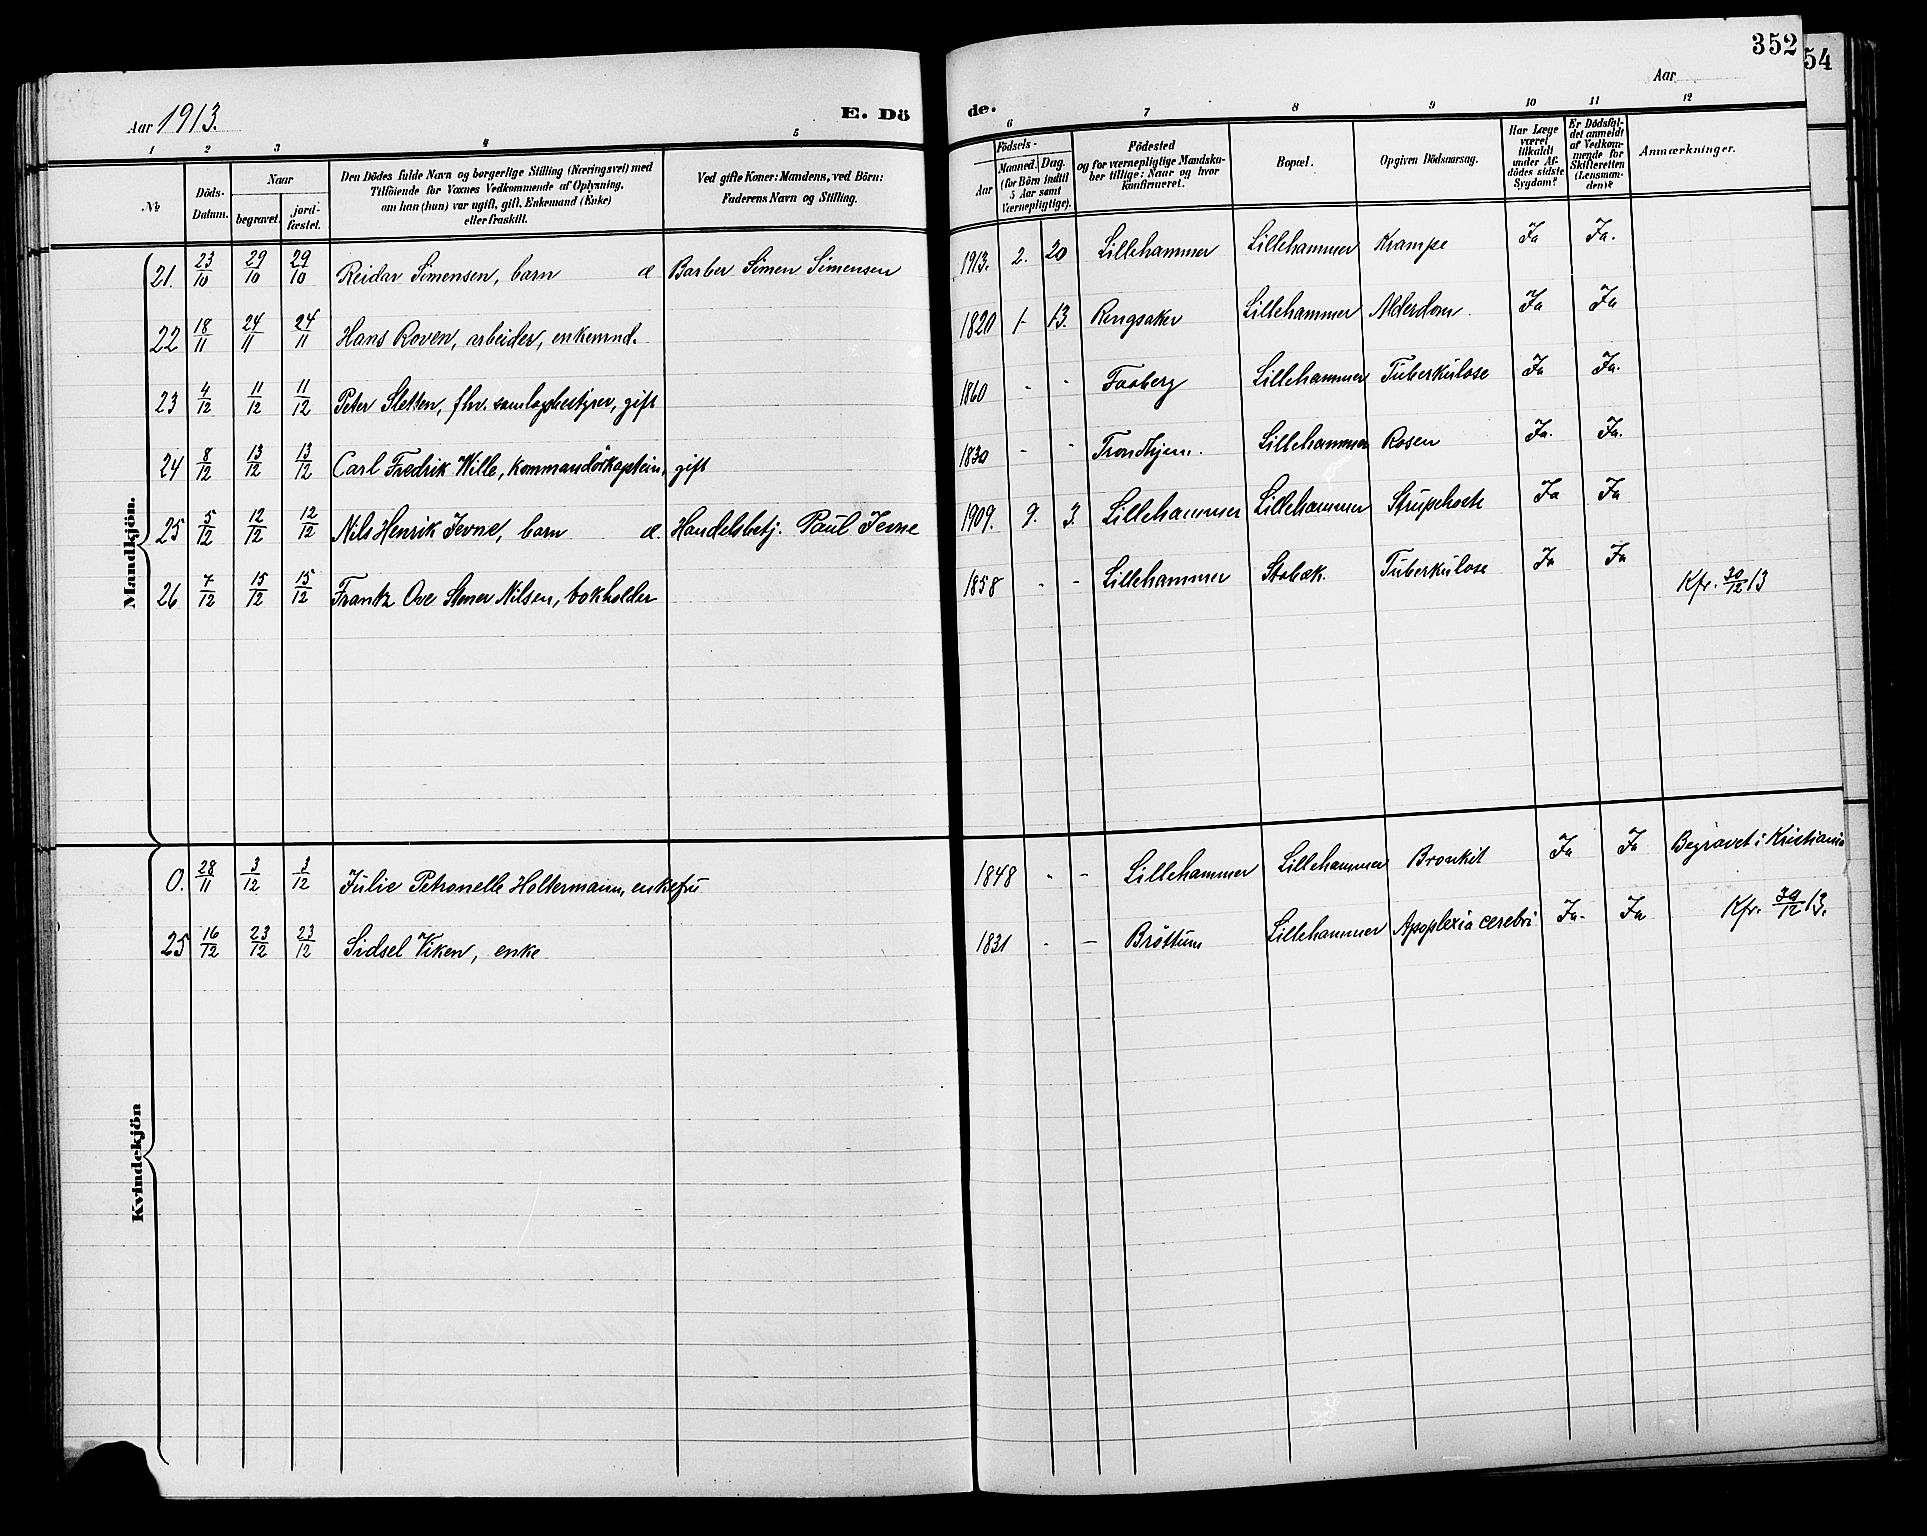 352
54
Aar 1913.
E. Dö
de.
Aar
1 2 3 4 5 6 7 8 9 10 11 12
No
Döds-Datum.
Naar
begravet.
jordfæstet.
Den Dödes fulde Navn og borgerlige Stilling (Næringsvei) med
Tilföiende for Voxnes Vedkommende af Oplysning,
om han (hun) var ugift, gift, Enkemand (Enke)
eller fraskilt.
Ved gifte Koner: Mandens, ved Börn:
Faderens Navn og Stilling.
Födsels-
Aar
Maaned. Dag.
(for Börn indtil
5 Aar samt
Værnepligtige).
Födested
og for værnepligtige Mandska-
ber tillige: Naar og hvor
konfirmeret.
Bopæl.
Opgiven Dödsaarsag.
Har Læge
været
tilkaldt
under Af-
dödes sidste
Sygdom?
Er Dödsfal-
det anmeldt
af Vedkom-
mende for
Skifteretten
(Lensman-
den)?
Anmærkninger.
Mandkjön.
21. 23/10 29/10 29/10 Reidar Simensen, barn æ Barber Simen Simensen 1913. 2. 20 Lillehammer Lillehammer Krampe Ja Ja.
22 18/11 24/11 24/11 Hans Roven, arbeider, enkemnd. 1820 1- 13. Ringsaker Lillehammer Alderdom. Ja Ja
23 4/12 11/12 11/12 Peter Sletten, fhv. samlagsbestyrer, gift 1860 - - Faaberg Lillehammer Tuberkulose Ja Ja.
24 8/12 13/12 13/12 Carl Fredrik Wille, kommandörkaptein, gift 1830 - - Trondhjem. Lillehammer Rosen Ja. Ja.
25 5/12 12/12 12/12 Nils Henrik Jevne, barn æ. Handelsbetj. Paul Jevne 1909. 9. 3. Lillehammer Lillehammer Strupehoste Ja Ja
26 7/12 15/12 15/12 Frantz Ove Stener Nilsen, bokholder 1858 - - Lillehammer Stabæk. Tuberkulose Ja Ja Kfr. 30/12 13
Kvindekjön
0. 28/11 3/12 3/12 Julie Petronelle Holtermann, enkefru 1848 - - Lillehammer Lillehammer Bronkit Ja Ja Begravet i Kristiania
25 16/12 23/12 23/12 Sidsel Viken, enke 1831 - - Bröttum Lillehammer Apoplexia cerebri Ja- Ja Kfr. 30/12 13.